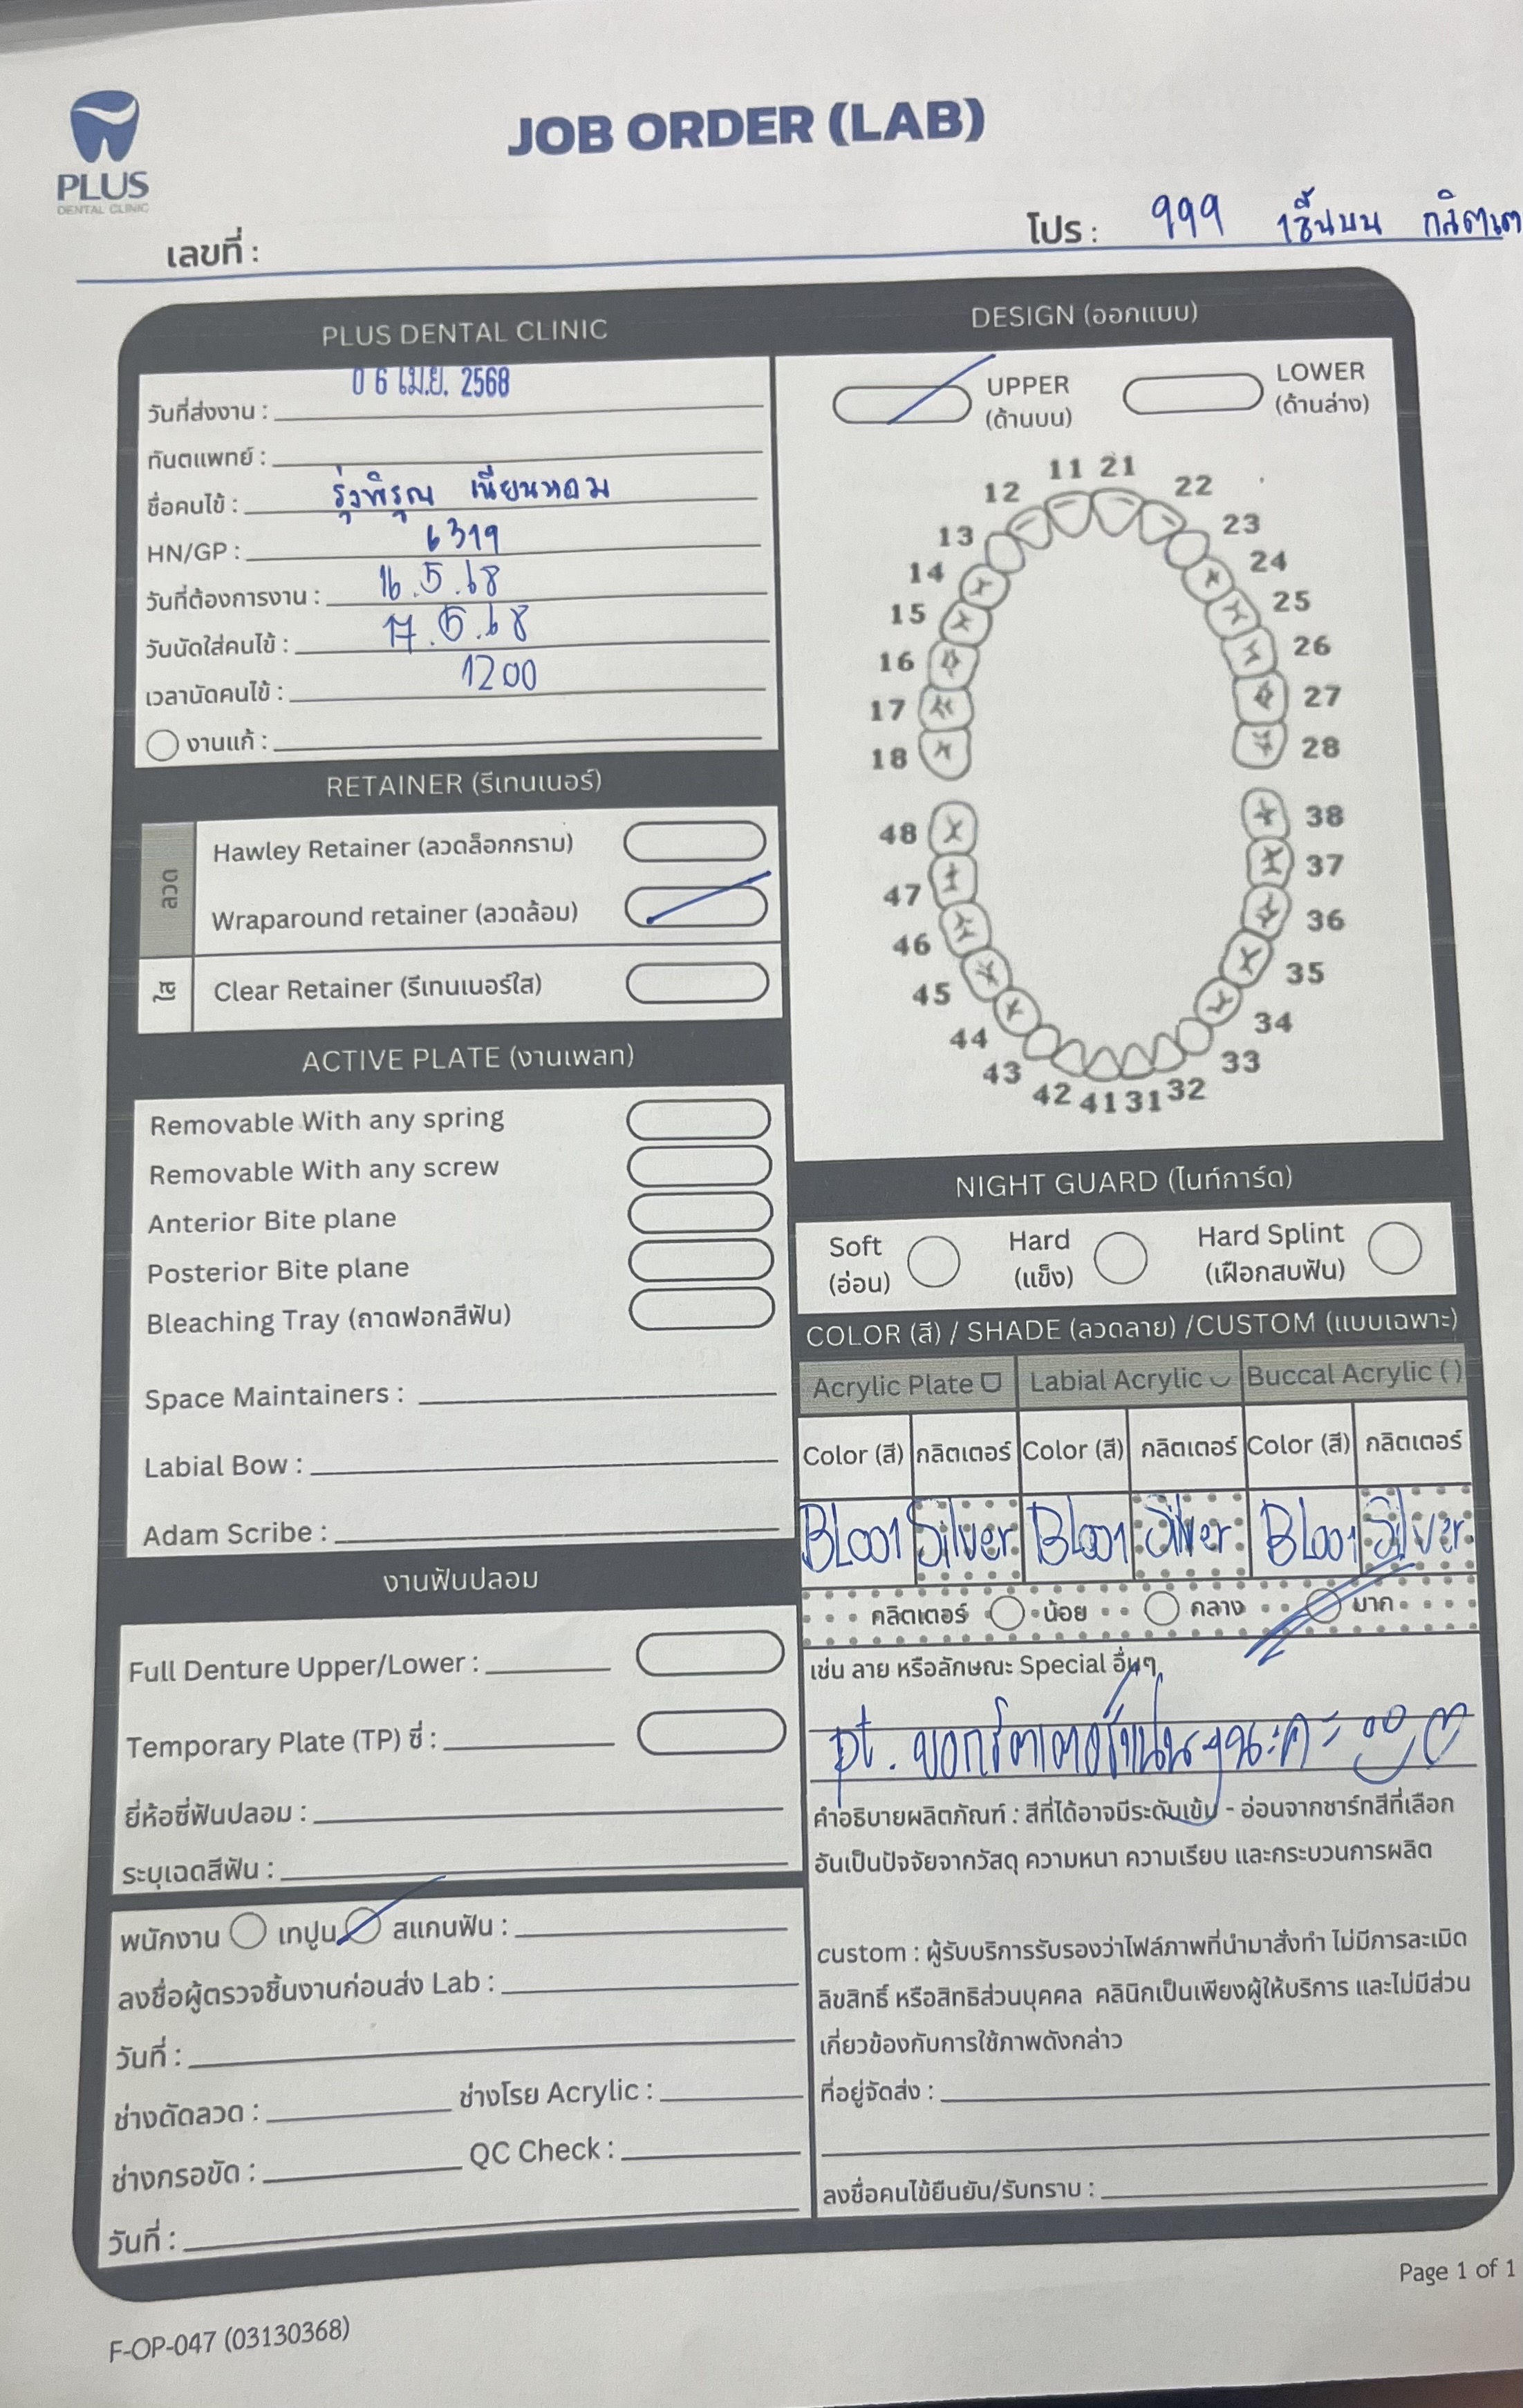 PLUS
DENTAL CLINIC
JOB ORDER (LAB)
เลขที่ :
โปร : 999 1ชิ้นบน กลิตเต
PLUS DENTAL CLINIC
วันที่ส่งงาน : 0 6 เม.ย. 2568
ทันตแพทย์ :
ชื่อคนไข้ : รุ่งพิรุณ เนียนหอม
HN/GP : 6319
วันที่ต้องการงาน : 16.5.68
วันนัดใส่คนไข้ : 17.5.68
เวลานัดคนไข้ : 1200
งานแก้ :
RETAINER (รีเทนเนอร์)
ลวด
Hawley Retainer (ลวดล็อกกราม)
Wraparound retainer (ลวดล้อม)
ใส
Clear Retainer (รีเทนเนอร์ใส)
ACTIVE PLATE (งานเพลท)
Removable With any spring
Removable With any screw
Anterior Bite plane
Posterior Bite plane
Bleaching Tray (ถาดฟอกสีฟัน)
Space Maintainers :
Labial Bow :
Adam Scribe :
งานฟันปลอม
Full Denture Upper/Lower :
Temporary Plate (TP) ซี่ :
ยี่ห้อซี่ฟันปลอม :
ระบุเฉดสีฟัน :
พนักงาน เทปูน สแกนฟัน :
ลงชื่อผู้ตรวจชิ้นงานก่อนส่ง Lab :
วันที่ :
ช่างดัดลวด : ช่างโรย Acrylic :
ช่างกรอขัด : QC Check :
วันที่ :
DESIGN (ออกแบบ)
UPPER LOWER
(ด้านบน) (ด้านล่าง)
11 21
12 22
13 23
14 24
15 25
16 26
17 27
18 28
48 38
47 37
46 36
45 35
44 34
43 33
42 41 31 32
NIGHT GUARD (ไนท์การ์ด)
Soft Hard Hard Splint
(อ่อน) (แข็ง) (เฝือกสบฟัน)
COLOR (สี) / SHADE (ลวดลาย) /CUSTOM (แบบเฉพาะ)
Acrylic Plate Labial Acrylic Buccal Acrylic ( )
Color (สี) กลิตเตอร์ Color (สี) กลิตเตอร์ Color (สี) กลิตเตอร์
BL001 Silver BL001 Silver BL001 Silver
คลิตเตอร์ น้อย กลาง มาก
เช่น ลาย หรือลักษณะ Special อื่นๆ
pt. ขอกริตเตอร์แน่นๆนะคะ
คำอธิบายผลิตภัณฑ์ : สีที่ได้อาจมีระดับเข้ม - อ่อนจากชาร์ทสีที่เลือก
อันเป็นปัจจัยจากวัสดุ ความหนา ความเรียบ และกระบวนการผลิต
custom : ผู้รับบริการรับรองว่าไฟล์ภาพที่นำมาสั่งทำ ไม่มีการละเมิด
ลิขสิทธิ์ หรือสิทธิส่วนบุคคล คลินิกเป็นเพียงผู้ให้บริการ และไม่มีส่วน
เกี่ยวข้องกับการใช้ภาพดังกล่าว
ที่อยู่จัดส่ง :
ลงชื่อคนไข้ยืนยัน/รับทราบ :
Page 1 of 1
F-OP-047 (03130368)